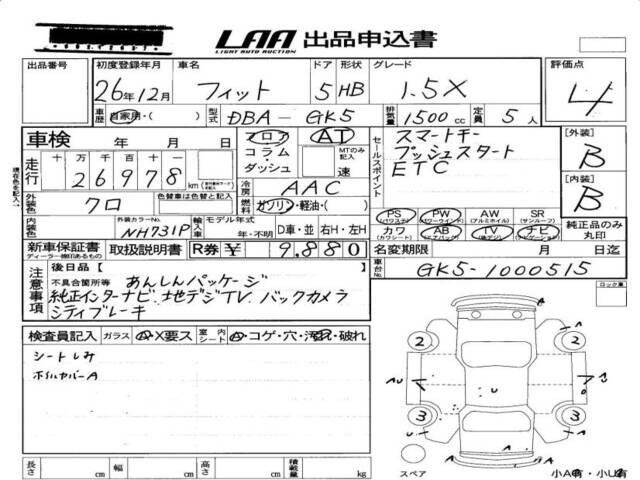 LAA 出品申込書
LIGHT AUTO AUCTION
出品番号 初度登録年月 車名 ドア 形状 グレード 評価点
26年12月 フィット 5 HB 1.5X 4
車歴 自家用・( ) 型式 DBA-GK5 排気量 1500cc 定員 5人
車検 年 月 日 フロア AT セールスポイント スマートキー [外装]
コラム・ダッシュ MTのみ記入 速 プッシュスタート B
走行 十万千百十 26978 km ETC [内装]
冷房 AAC B
外装色 クロ 色替車は色替と記入 燃料 ガソリン・軽油・( )
PS (パワステ) PW (パワーウインド) AW (アルミホイル) SR (サンルーフ) 純正品のみ丸印
外装カラーNo. NH731P 輸入車 モデル年式 年・不明 D車・並 右H・左H カワ (カワシート) AB (エアバッグ) TV ナビ (ナビゲーション)
新車保証書 取扱説明書 R券 ¥ 9,880 名変期限 月 日迄
ディーラー捺印あるもの
車台No. GK5-1000515
ロック巣
注意事項 後日品( )
不具合箇所等 あんしんパッケージ
純正インターナビ、地デジTV、バックカメラ
シティブレーキ
検査員記入 ガラス A・X要ス 室内シート A・コゲ・穴・汚れ・破れ
シートしみ
ホイルカバーA
2 2 A
A U U A
3 3
A A A
長さ cm 幅 cm 高さ cm 積載量 kg スペア 小A有・小U有
現在色を記入↑